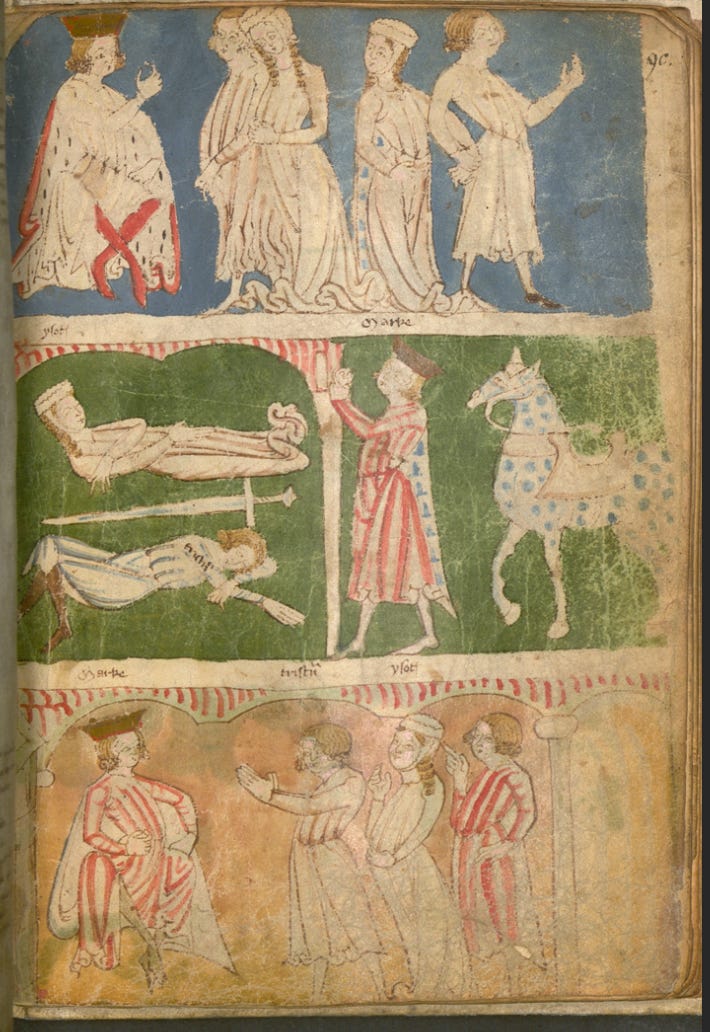 90.
ysot Marke
Marke tristā ysot